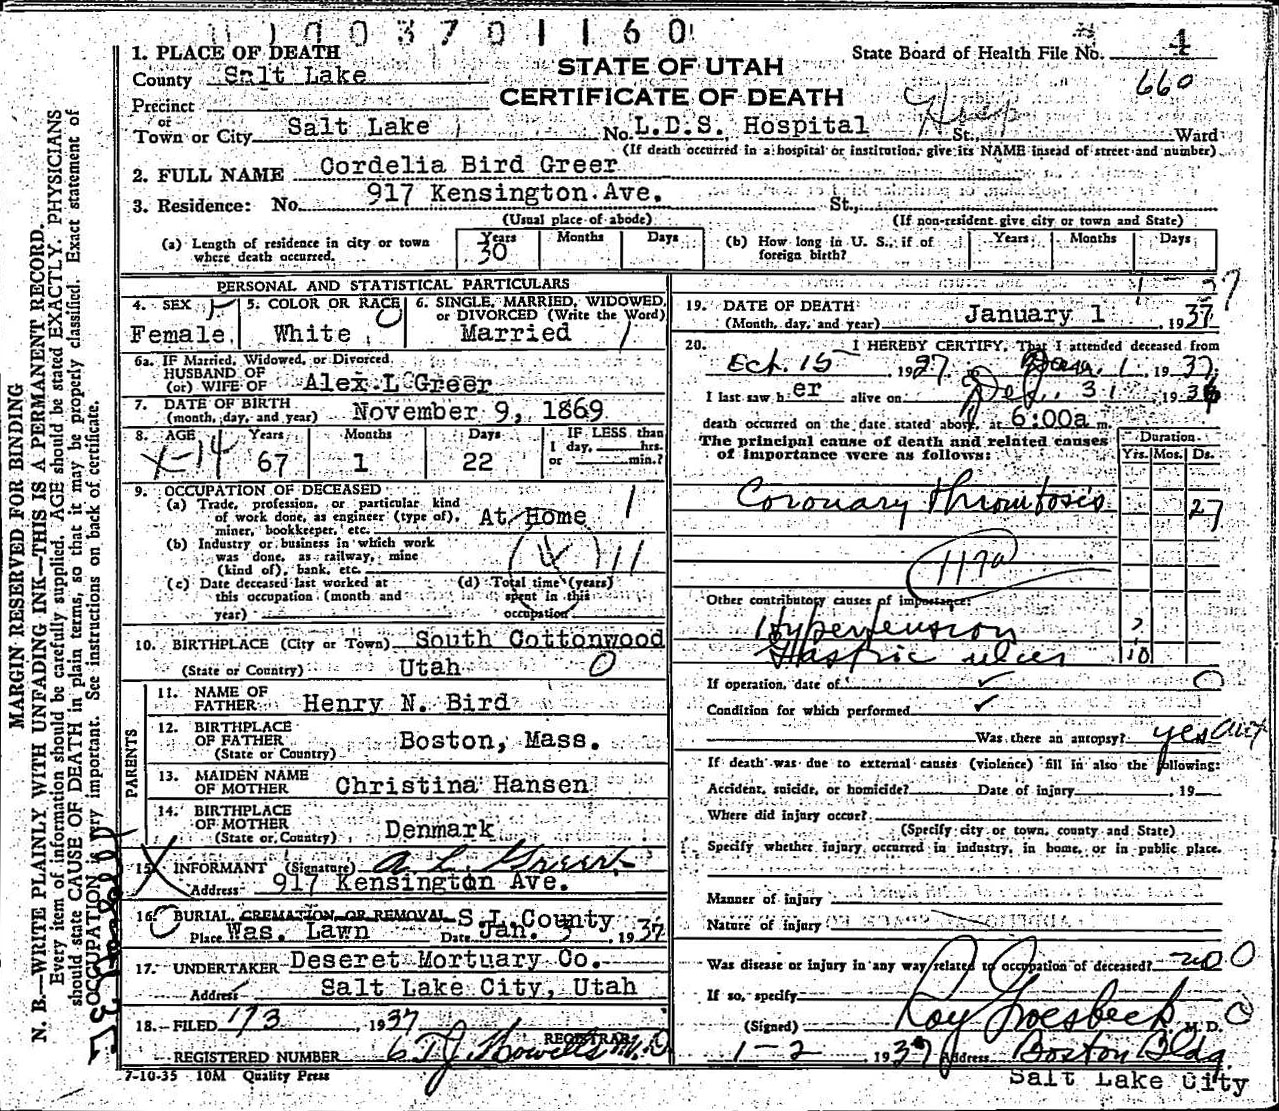 1003701160
1. PLACE OF DEATH
County Salt Lake
Precinct
or
Town or City Salt Lake
STATE OF UTAH
CERTIFICATE OF DEATH
State Board of Health File No. 4
660
No. L.D.S. Hospital St. Ward
(If death occurred in a hospital or institution, give its NAME insead of street and number)
2. FULL NAME Cordelia Bird Greer
3. Residence: No. 917 Kensington Ave. St.,
(Usual place of abode) (If non-resident give city or town and State)
(a) Length of residence in city or town where death occurred. Years 30 Months Days
(b) How long in U. S., if of foreign birth? Years Months Days
PERSONAL AND STATISTICAL PARTICULARS
4. SEX Female
5. COLOR OR RACE White
6. SINGLE, MARRIED, WIDOWED, or DIVORCED (Write the Word) Married
6a. IF Married, Widowed, or Divorced
HUSBAND OF
(or) WIFE OF Alex L Greer
7. DATE OF BIRTH
(month, day, and year) November 9, 1869
8. AGE Years 67 Months 1 Days 22
IF LESS than
1 day, hrs.
or min.?
X-14
9. OCCUPATION OF DECEASED
(a) Trade, profession, or particular kind
of work done, as engineer (type of),
miner, bookkeeper, etc. At Home
(b) Industry or business in which work
was done, as railway, mine
(kind of), bank, etc.
(c) Date deceased last worked at
this occupation (month and
year)
(d) Total time (years)
spent in this
occupation
10. BIRTHPLACE (City or Town) South Cottonwood
(State or Country) Utah
PARENTS
11. NAME OF
FATHER Henry N. Bird
12. BIRTHPLACE
OF FATHER
(State or Country) Boston, Mass.
13. MAIDEN NAME
OF MOTHER Christina Hansen
14. BIRTHPLACE
OF MOTHER
(State or Country) Denmark
15. INFORMANT (Signature) A. L. Greer
Address 917 Kensington Ave.
16. BURIAL, CREMATION OR REMOVAL S L County
Place Was. Lawn Date Jan. 3, 1937
17. UNDERTAKER Deseret Mortuary Co.
Address Salt Lake City, Utah
18. FILED 1/3, 1937
REGISTRAR
REGISTERED NUMBER 6 T J Howells M.D
7-10-35 10M Quality Press
19. DATE OF DEATH
(Month, day, and year) January 1, 1937
20. I HEREBY CERTIFY, That I attended deceased from
Oct. 15 1927 Jan. 1, 1937
I last saw h er alive on Dec. 31, 1936
death occurred on the date stated above, at 6:00a m.
The principal cause of death and related causes
of importance were as follows:
Duration
Yrs. Mos. Ds.
Coronary thrombosis 27
Other contributory causes of importance:
Hypertension ?
Gastric ulcer 10
If operation, date of
Condition for which performed
Was there an autopsy? yes aut
If death was due to external causes (violence) fill in also the following:
Accident, suicide, or homicide? Date of injury , 19
Where did injury occur?
(Specify city or town, county and State)
Specify whether injury occurred in industry, in home, or in public place.
Manner of injury
Nature of injury
Was disease or injury in any way related to occupation of deceased? no
If so, specify
(Signed) Roy Groesbeck M. D.
1-2 1937 Address Boston Bldg.
Salt Lake City
MARGIN RESERVED FOR BINDING
N. B.—WRITE PLAINLY WITH UNFADING INK—THIS IS A PERMANENT RECORD.
Every item of information should be carefully supplied. AGE should be stated EXACTLY. PHYSICIANS
should state CAUSE OF DEATH in plain terms, so that it may be properly classified. Exact statement of
OCCUPATION is very important. See instructions on back of certificate.